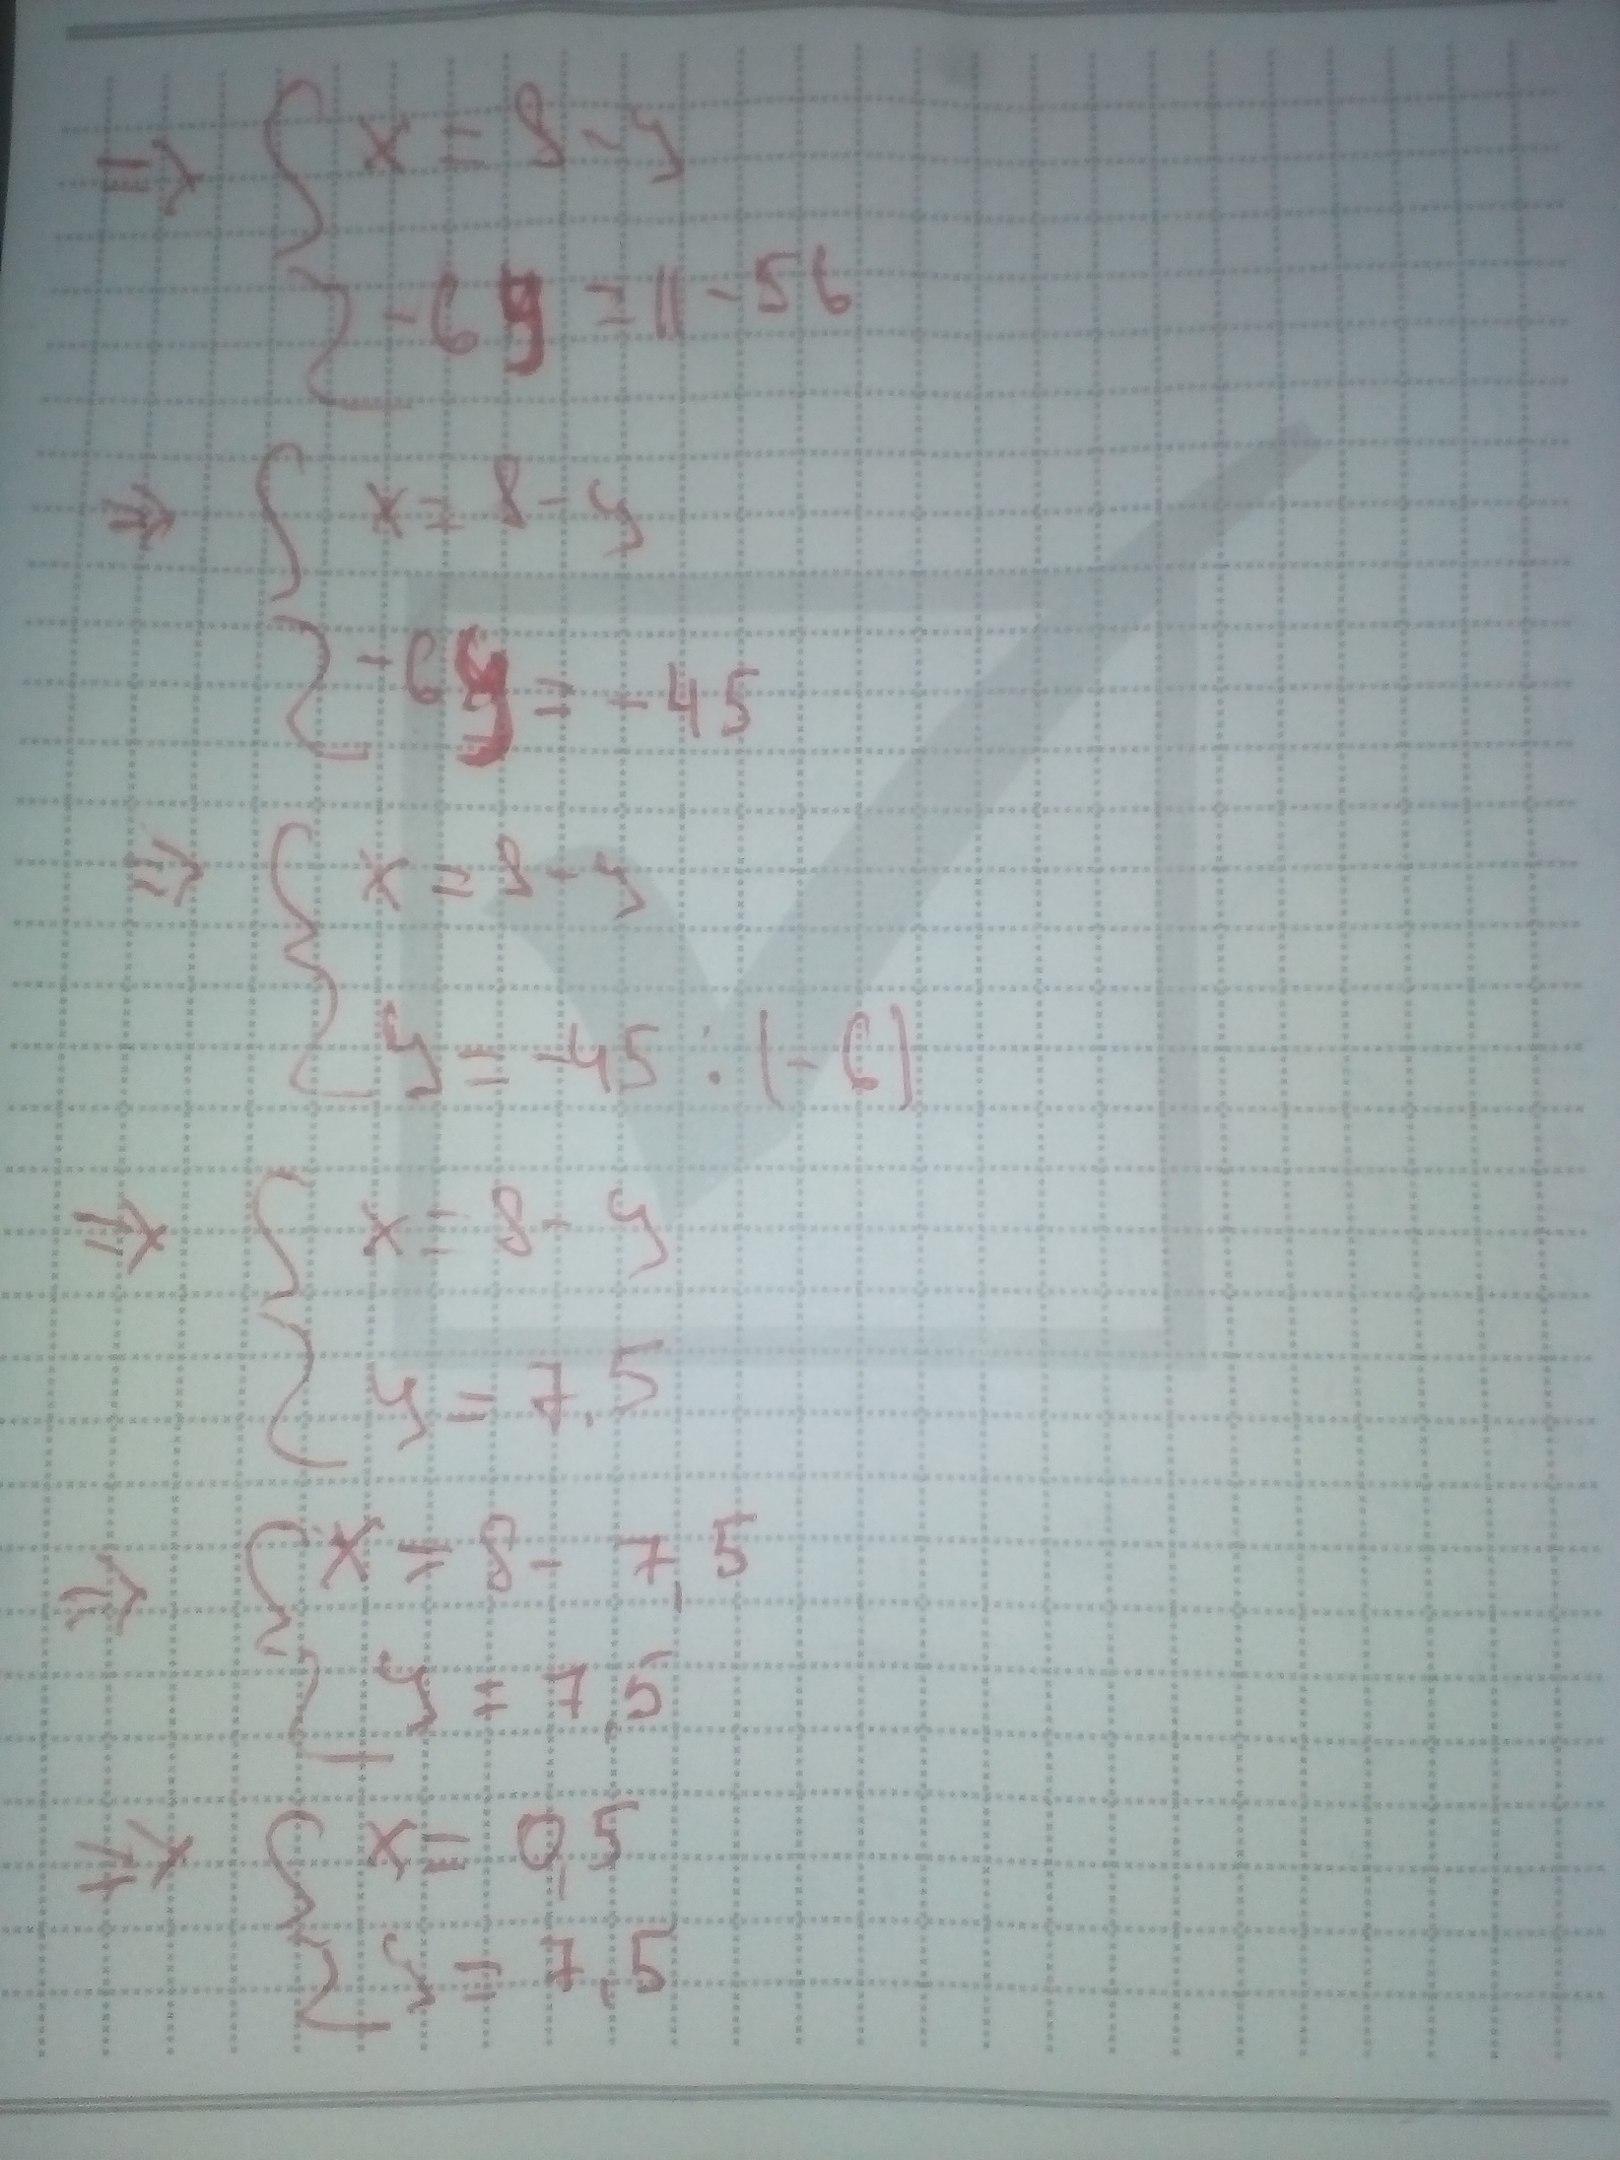 => { x = 8 - y
-6y = 11 - 56
=> { x = 8 - y
-6y = -45
=> { x = 8 - y
y = -45 : (-6)
=> { x = 8 - y
y = 7,5
=> { x = 8 - 7,5
y = 7,5
=> { x = 0,5
y = 7,5